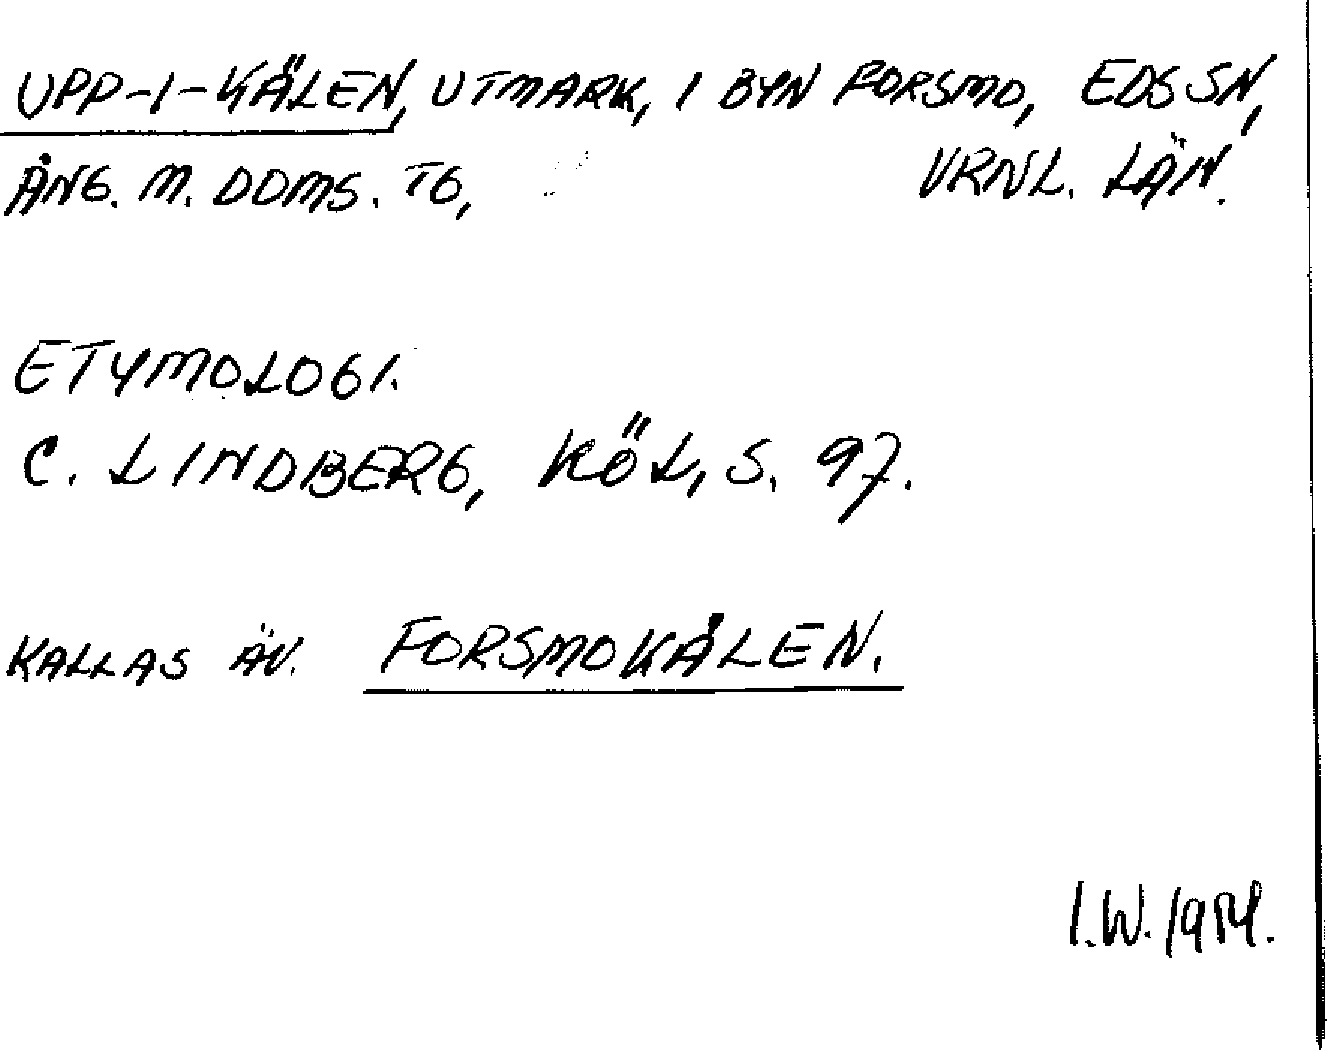 UPP-I-KÄLEN, UTMARK, I BYN FORSMO, EDS SN,
ÅNG. M. DOMS. TG, VRNL. LÄN.
ETYMOLOGI.
C. LINDBERG, KÖL, S. 97.
KALLAS ÄV. FORSMOKÅLEN.
I.W.